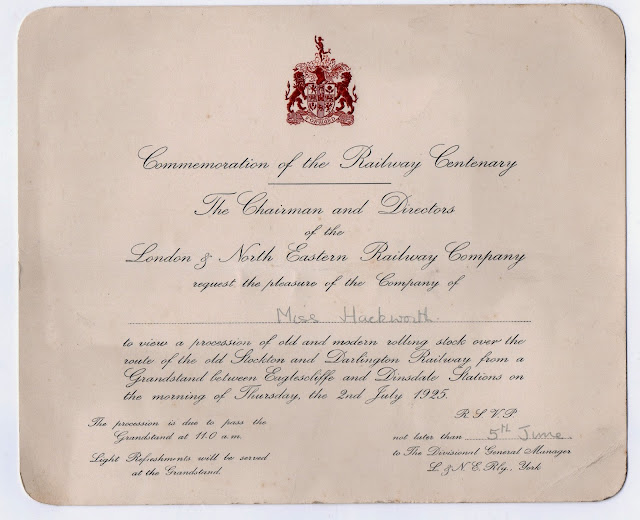 FORWARD
Commemoration of the Railway Centenary
The Chairman and Directors
of the
London & North Eastern Railway Company
request the pleasure of the Company of
Miss Hackworth
to view a procession of old and modern rolling stock over the
route of the old Stockton and Darlington Railway from a
Grandstand between Eaglescliffe and Dinsdale Stations on
the morning of Thursday, the 2nd July 1925.
The procession is due to pass the
Grandstand at 11.0 a.m.
Light Refreshments will be served
at the Grandstand.
R.S.V.P
not later than 5th June
to The Divisional General Manager
L. & N. E. Rly., York